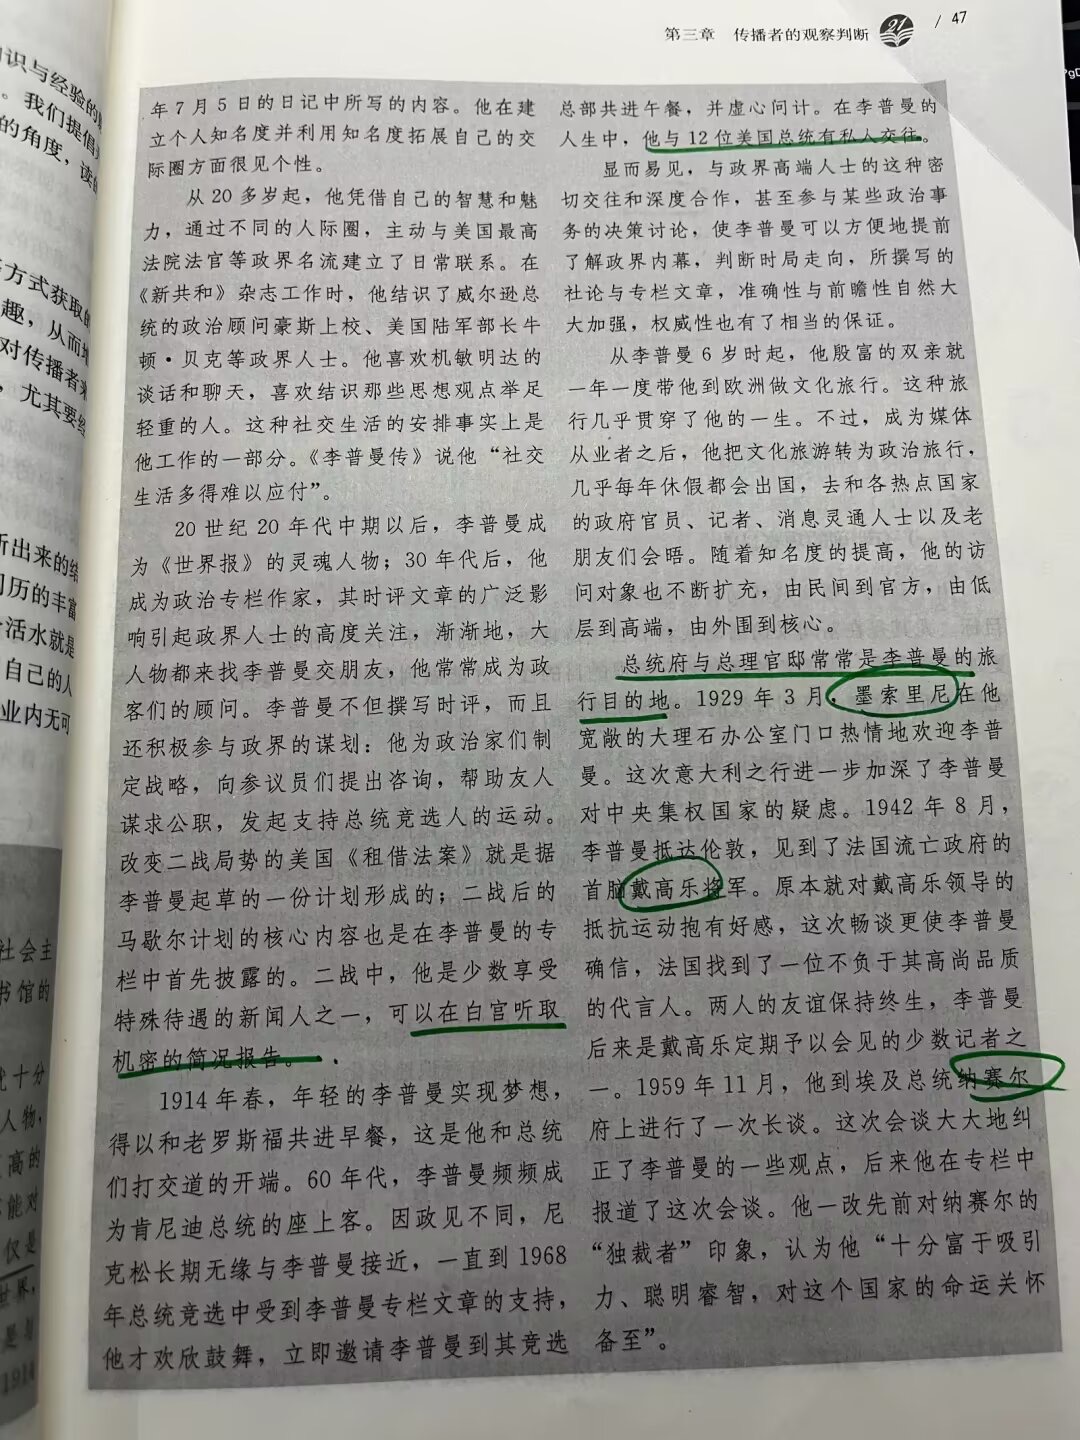 第三章 传播者的观察判断 21 / 47
年7月5日的日记中所写的内容。他在建
立个人知名度并利用知名度拓展自己的交
际圈方面很见个性。
从20多岁起，他凭借自己的智慧和魅
力，通过不同的人际圈，主动与美国最高
法院法官等政界名流建立了日常联系。在
《新共和》杂志工作时，他结识了威尔逊总
统的政治顾问豪斯上校、美国陆军部长牛
顿·贝克等政界人士。他喜欢机敏明达的
谈话和聊天，喜欢结识那些思想观点举足
轻重的人。这种社交生活的安排事实上是
他工作的一部分。《李普曼传》说他“社交
生活多得难以应付”。
20世纪20年代中期以后，李普曼成
为《世界报》的灵魂人物；30年代后，他
成为政治专栏作家，其时评文章的广泛影
响引起政界人士的高度关注，渐渐地，大
人物都来找李普曼交朋友，他常常成为政
客们的顾问。李普曼不但撰写时评，而且
还积极参与政界的谋划：他为政治家们制
定战略，向参议员们提出咨询，帮助友人
谋求公职，发起支持总统竞选人的运动。
改变二战局势的美国《租借法案》就是据
李普曼起草的一份计划形成的；二战后的
马歇尔计划的核心内容也是在李普曼的专
栏中首先披露的。二战中，他是少数享受
特殊待遇的新闻人之一，可以在白宫听取
机密的简况报告。
1914年春，年轻的李普曼实现梦想，
得以和老罗斯福共进早餐，这是他和总统
们打交道的开端。60年代，李普曼频频成
为肯尼迪总统的座上客。因政见不同，尼
克松长期无缘与李普曼接近，一直到1968
年总统竞选中受到李普曼专栏文章的支持，
他才欢欣鼓舞，立即邀请李普曼到其竞选
总部共进午餐，并虚心问计。在李普曼的
人生中，他与12位美国总统有私人交往。
显而易见，与政界高端人士的这种密
切交往和深度合作，甚至参与某些政治事
务的决策讨论，使李普曼可以方便地提前
了解政界内幕，判断时局走向，所撰写的
社论与专栏文章，准确性与前瞻性自然大
大加强，权威性也有了相当的保证。
从李普曼6岁时起，他殷富的双亲就
一年一度带他到欧洲做文化旅行。这种旅
行几乎贯穿了他的一生。不过，成为媒体
从业者之后，他把文化旅游转为政治旅行，
几乎每年休假都会出国，去和各热点国家
的政府官员、记者、消息灵通人士以及老
朋友们会晤。随着知名度的提高，他的访
问对象也不断扩充，由民间到官方，由低
层到高端，由外围到核心。
总统府与总理官邸常常是李普曼的旅
行目的地。1929年3月，墨索里尼在他
宽敞的大理石办公室门口热情地欢迎李普
曼。这次意大利之行进一步加深了李普曼
对中央集权国家的疑虑。1942年8月，
李普曼抵达伦敦，见到了法国流亡政府的
首脑戴高乐将军。原本就对戴高乐领导的
抵抗运动抱有好感，这次畅谈更使李普曼
确信，法国找到了一位不负于其高尚品质
的代言人。两人的友谊保持终生，李普曼
后来是戴高乐定期予以会见的少数记者之
一。1959年11月，他到埃及总统纳赛尔
府上进行了一次长谈。这次会谈大大地纠
正了李普曼的一些观点，后来他在专栏中
报道了这次会谈。他一改先前对纳赛尔的
“独裁者”印象，认为他“十分富于吸引
力、聪明睿智，对这个国家的命运关怀
备至”。